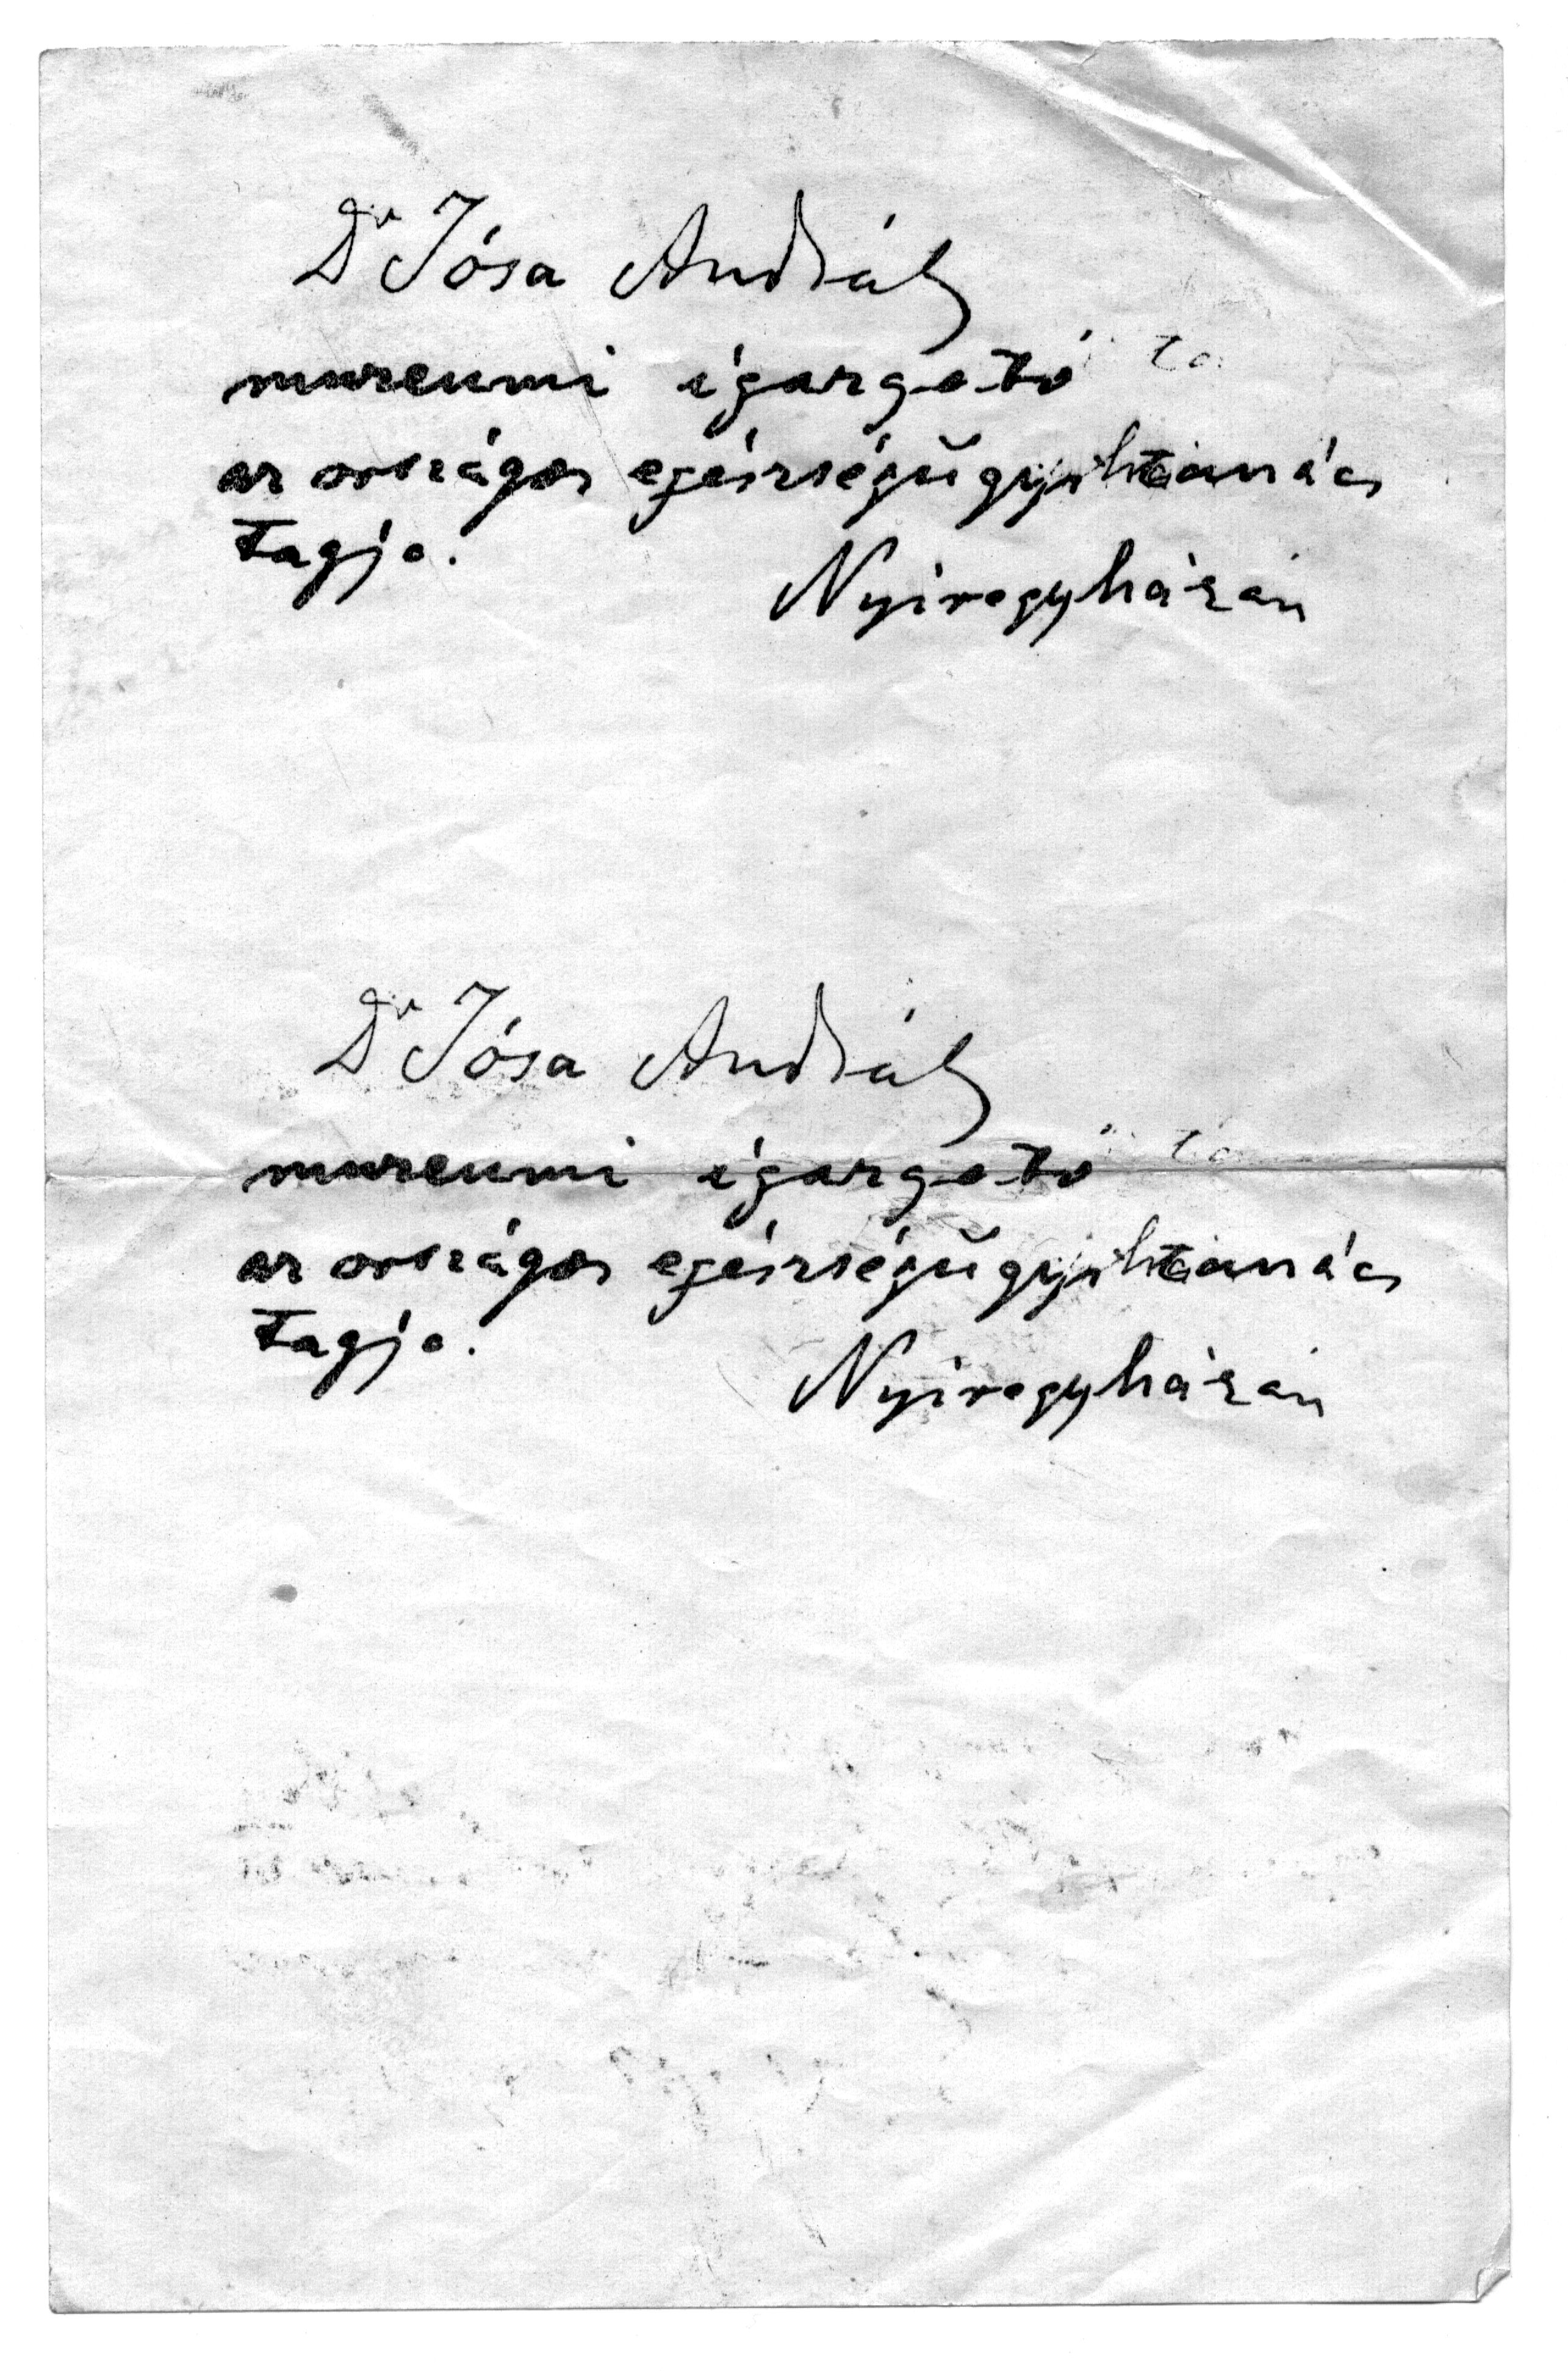 Dr Jósa András
muzeumi igazgató
az országos egészségügyi tanács
tagja.
Nyiregyházán
Dr Jósa András
muzeumi igazgató
az országos egészségügyi tanács
tagja.
Nyiregyházán